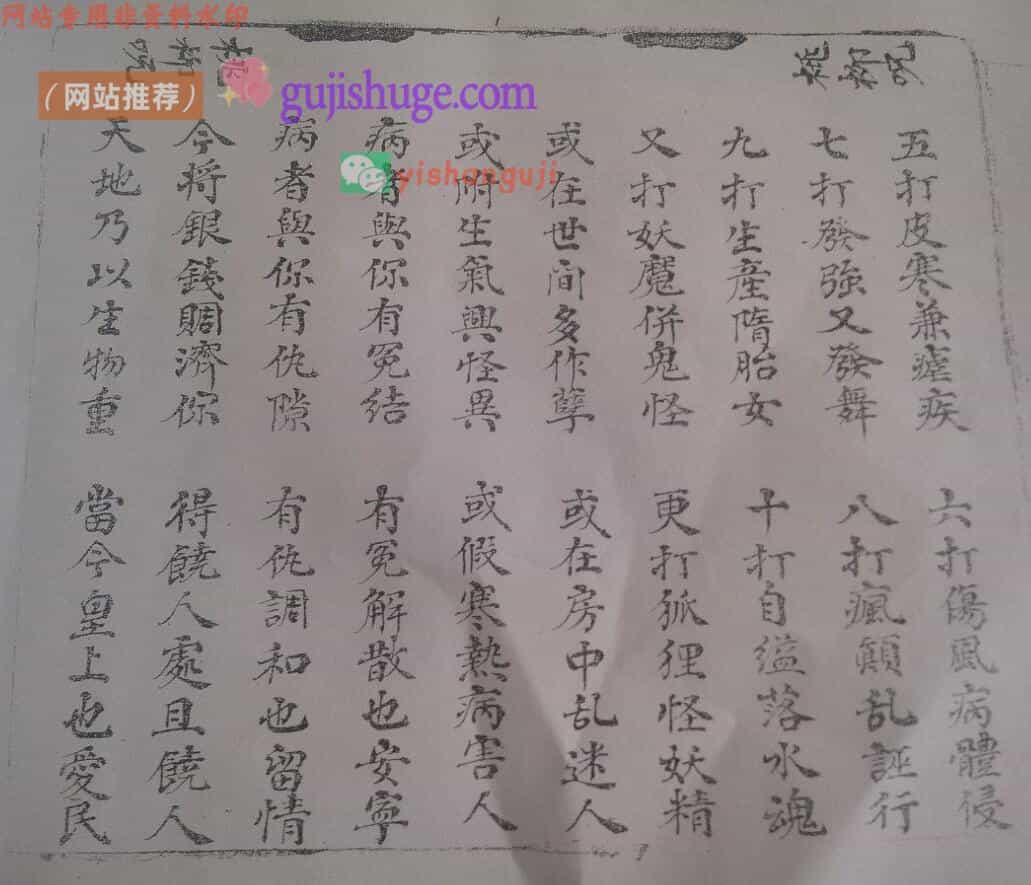 网站专用非资料水印
（网站推荐）
gujishuge.com
yishanguji
五打皮寒兼瘧疾 六打傷風病體侵
七打發強又發舞 八打瘋顛乱誣行
九打生產隋胎女 十打自缢落水魂
又打妖魔併鬼怪 更打狐狸怪妖精
或在世间多作孽 或在房中乱迷人
或附生氣興怪異 或假寒熱病害人
病者與你有冤结 有冤解散也安寧
病者與你有仇隙 有仇調和也留情
今将銀錢賙濟你 得饒人處且饒人
天地乃以生物重 當今皇上也愛民